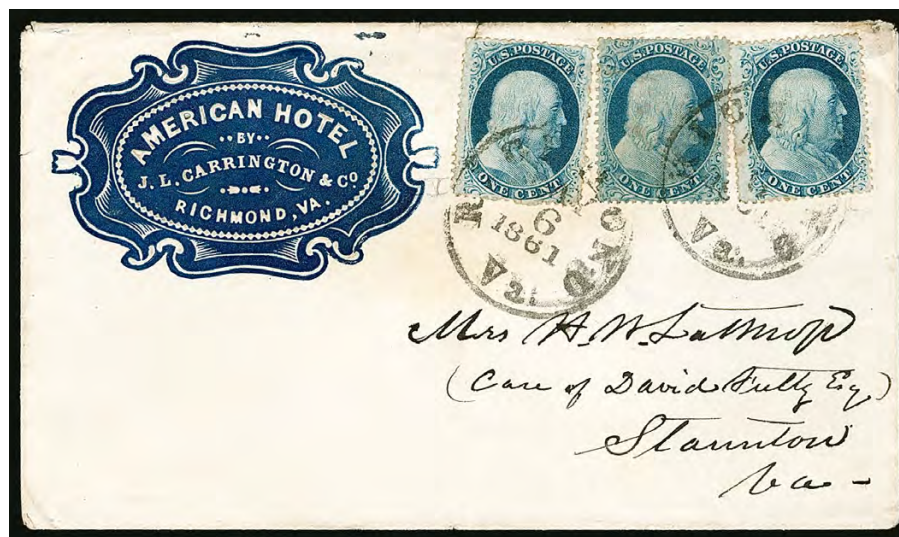 AMERICAN HOTEL
BY
J. L. CARRINGTON & CO
RICHMOND, VA.
U.S. POSTAGE
ONE CENT
U.S. POSTAGE
ONE CENT
U.S. POSTAGE
ONE CENT
6
1861
Va.
Va.
Mrs H. W. Lathrop
(Care of David Fultz Esq)
Staunton
Va -